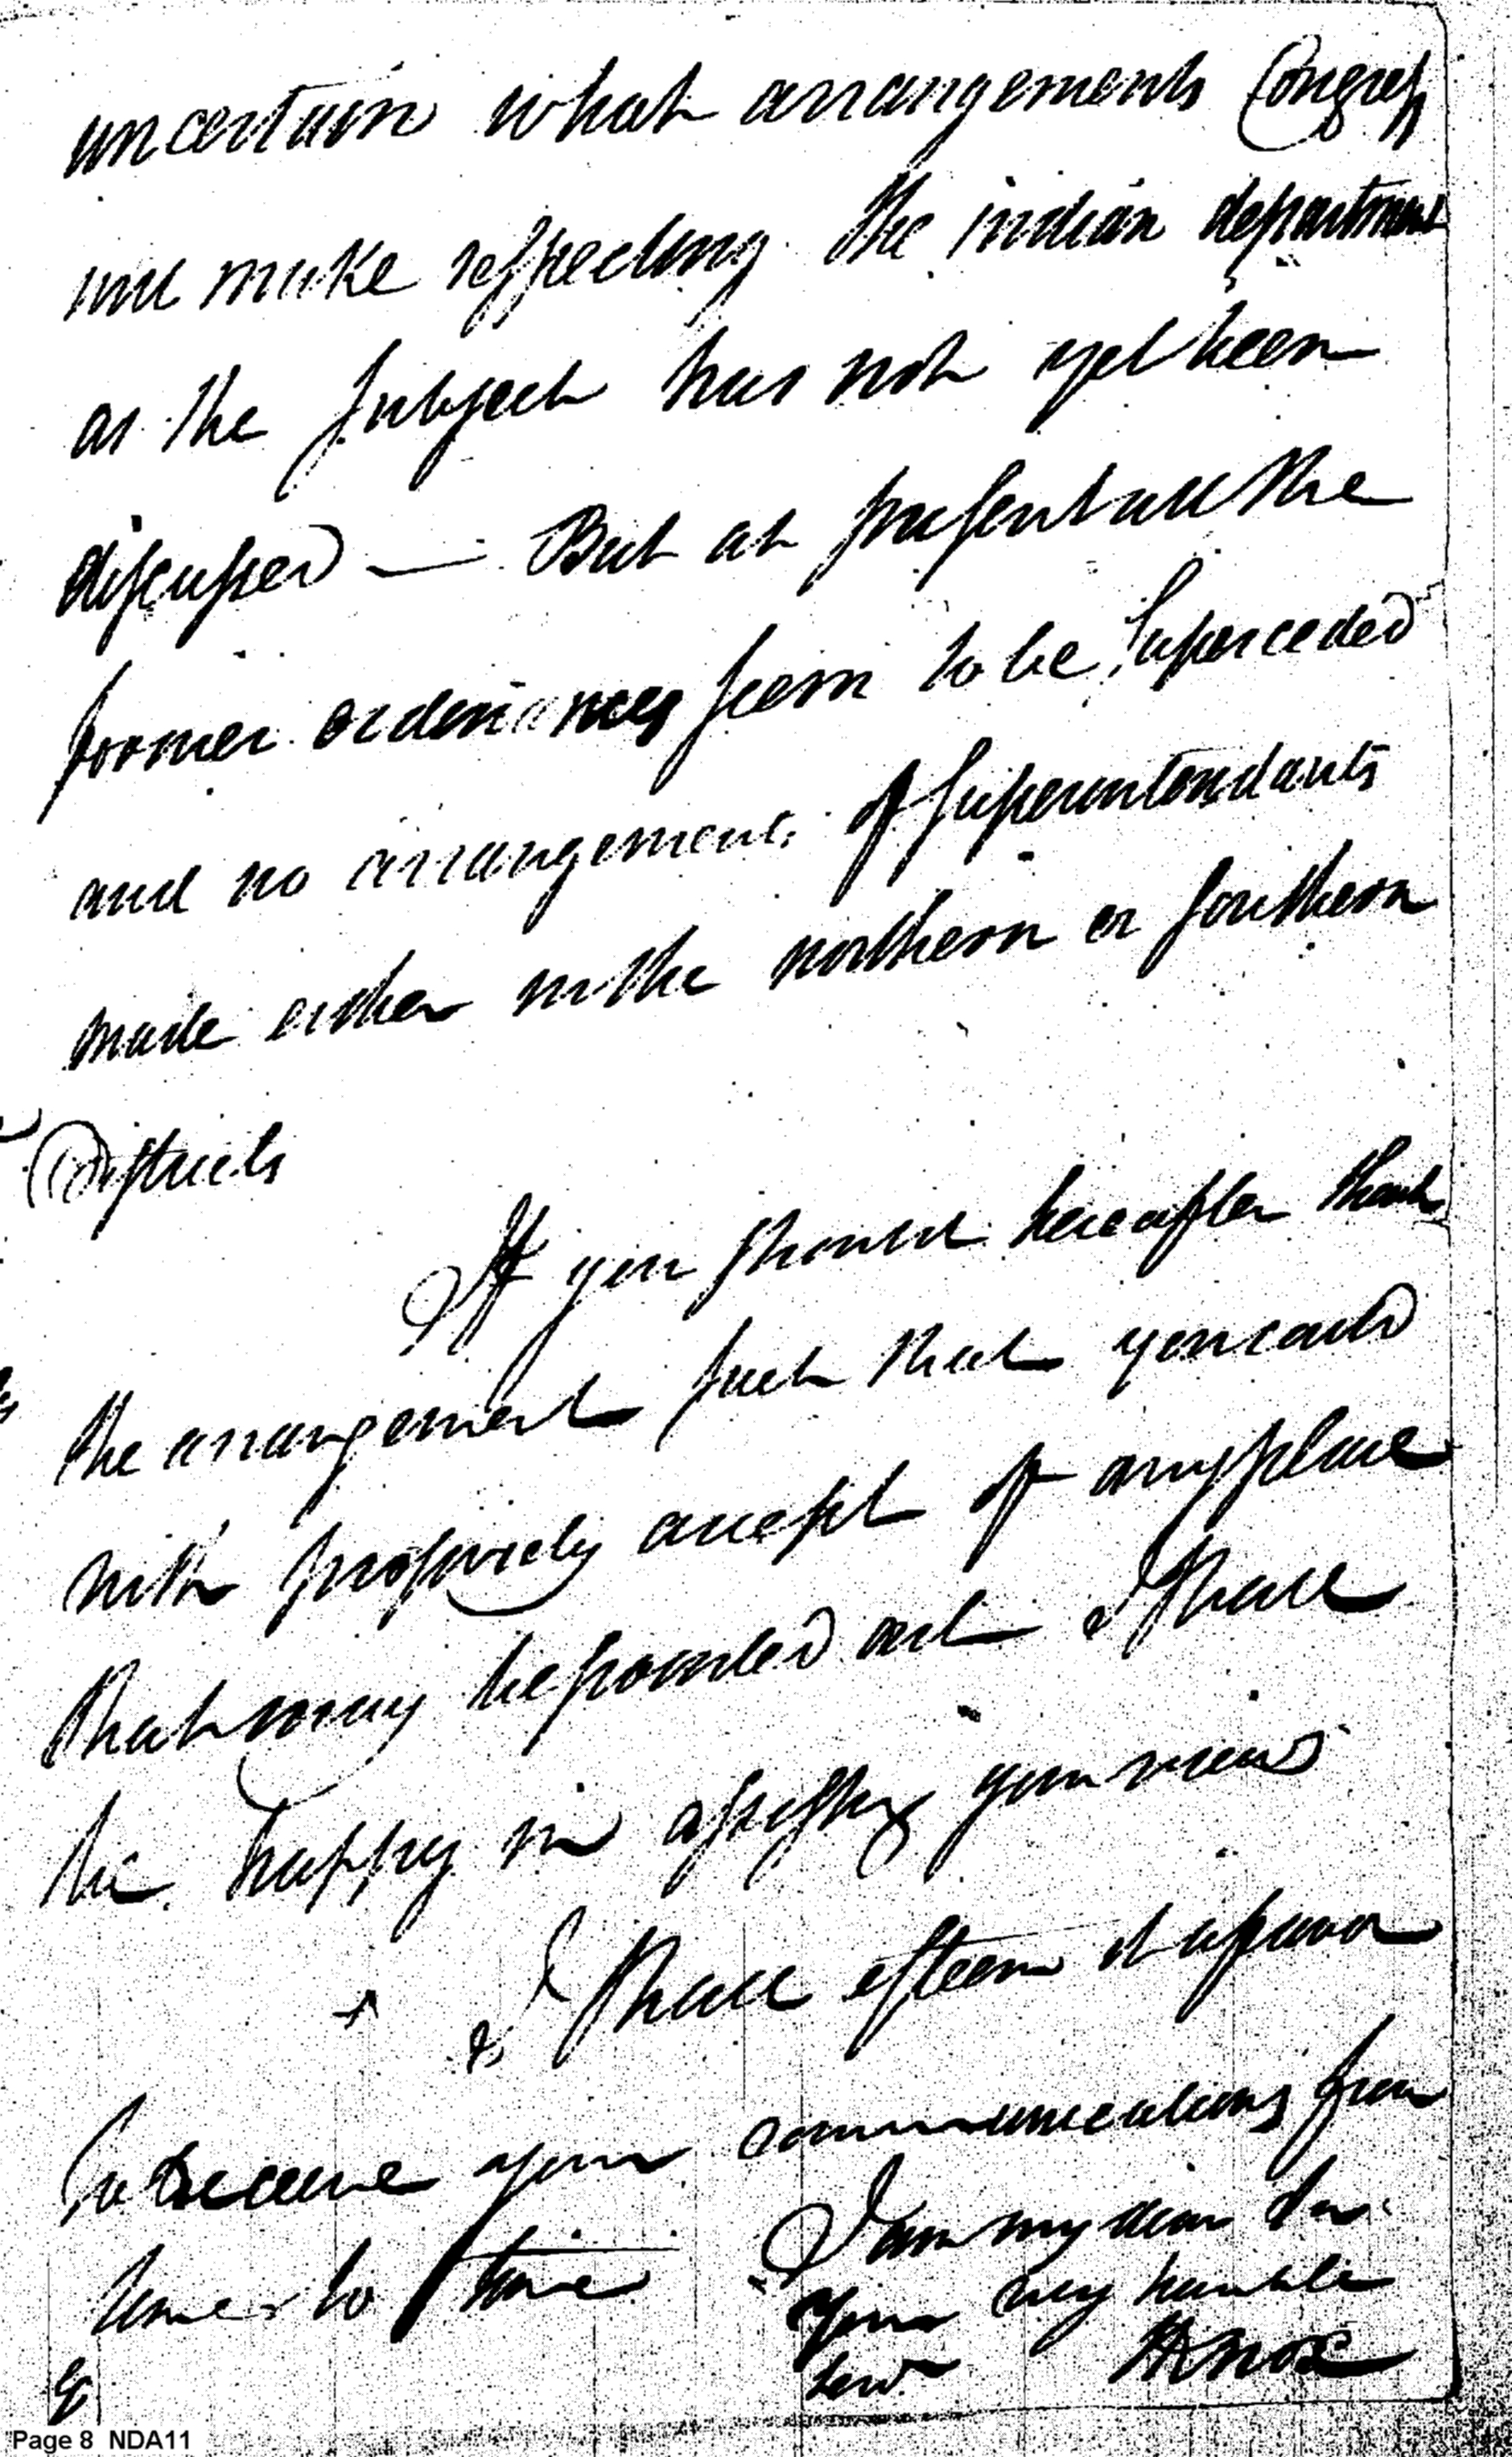 uncertain what arrangements Congress
will make respecting the indian department
as the subject has not yet been
discussed — But at present all the
former ordinances seem to be superceded
and no arrangements of superintendants
made either in the northern or southern
Districts
If you should hereafter think
the arrangement such that you could
with propriety accept of any place
that may be pointed out I shall
be happy in assisting your views
I shall esteem it a favor
to receive your communications from
time to time
I am my dear Sir
Your very humble
Servt
HKnox
Page 8 NDA11